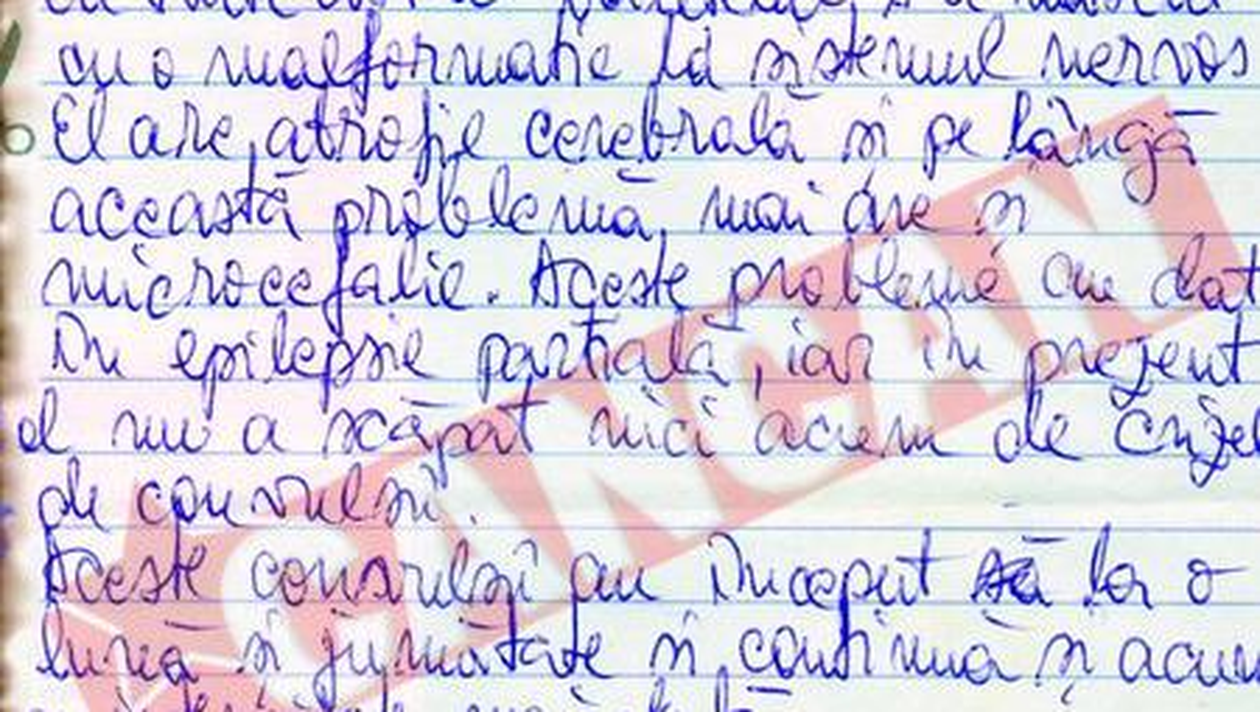 cu o malformație la sistemul nervos
El are atrofie cerebrală și pe lângă
această problemă, mai are și
microcefalie. Aceste probleme au dat
în epilepsie parțială, iar în prezent
el nu a scăpat nici acum de crizel
de convulsii.
Aceste convulsii au început să la o
lună și jumătate și continuă și acum
CANCAN